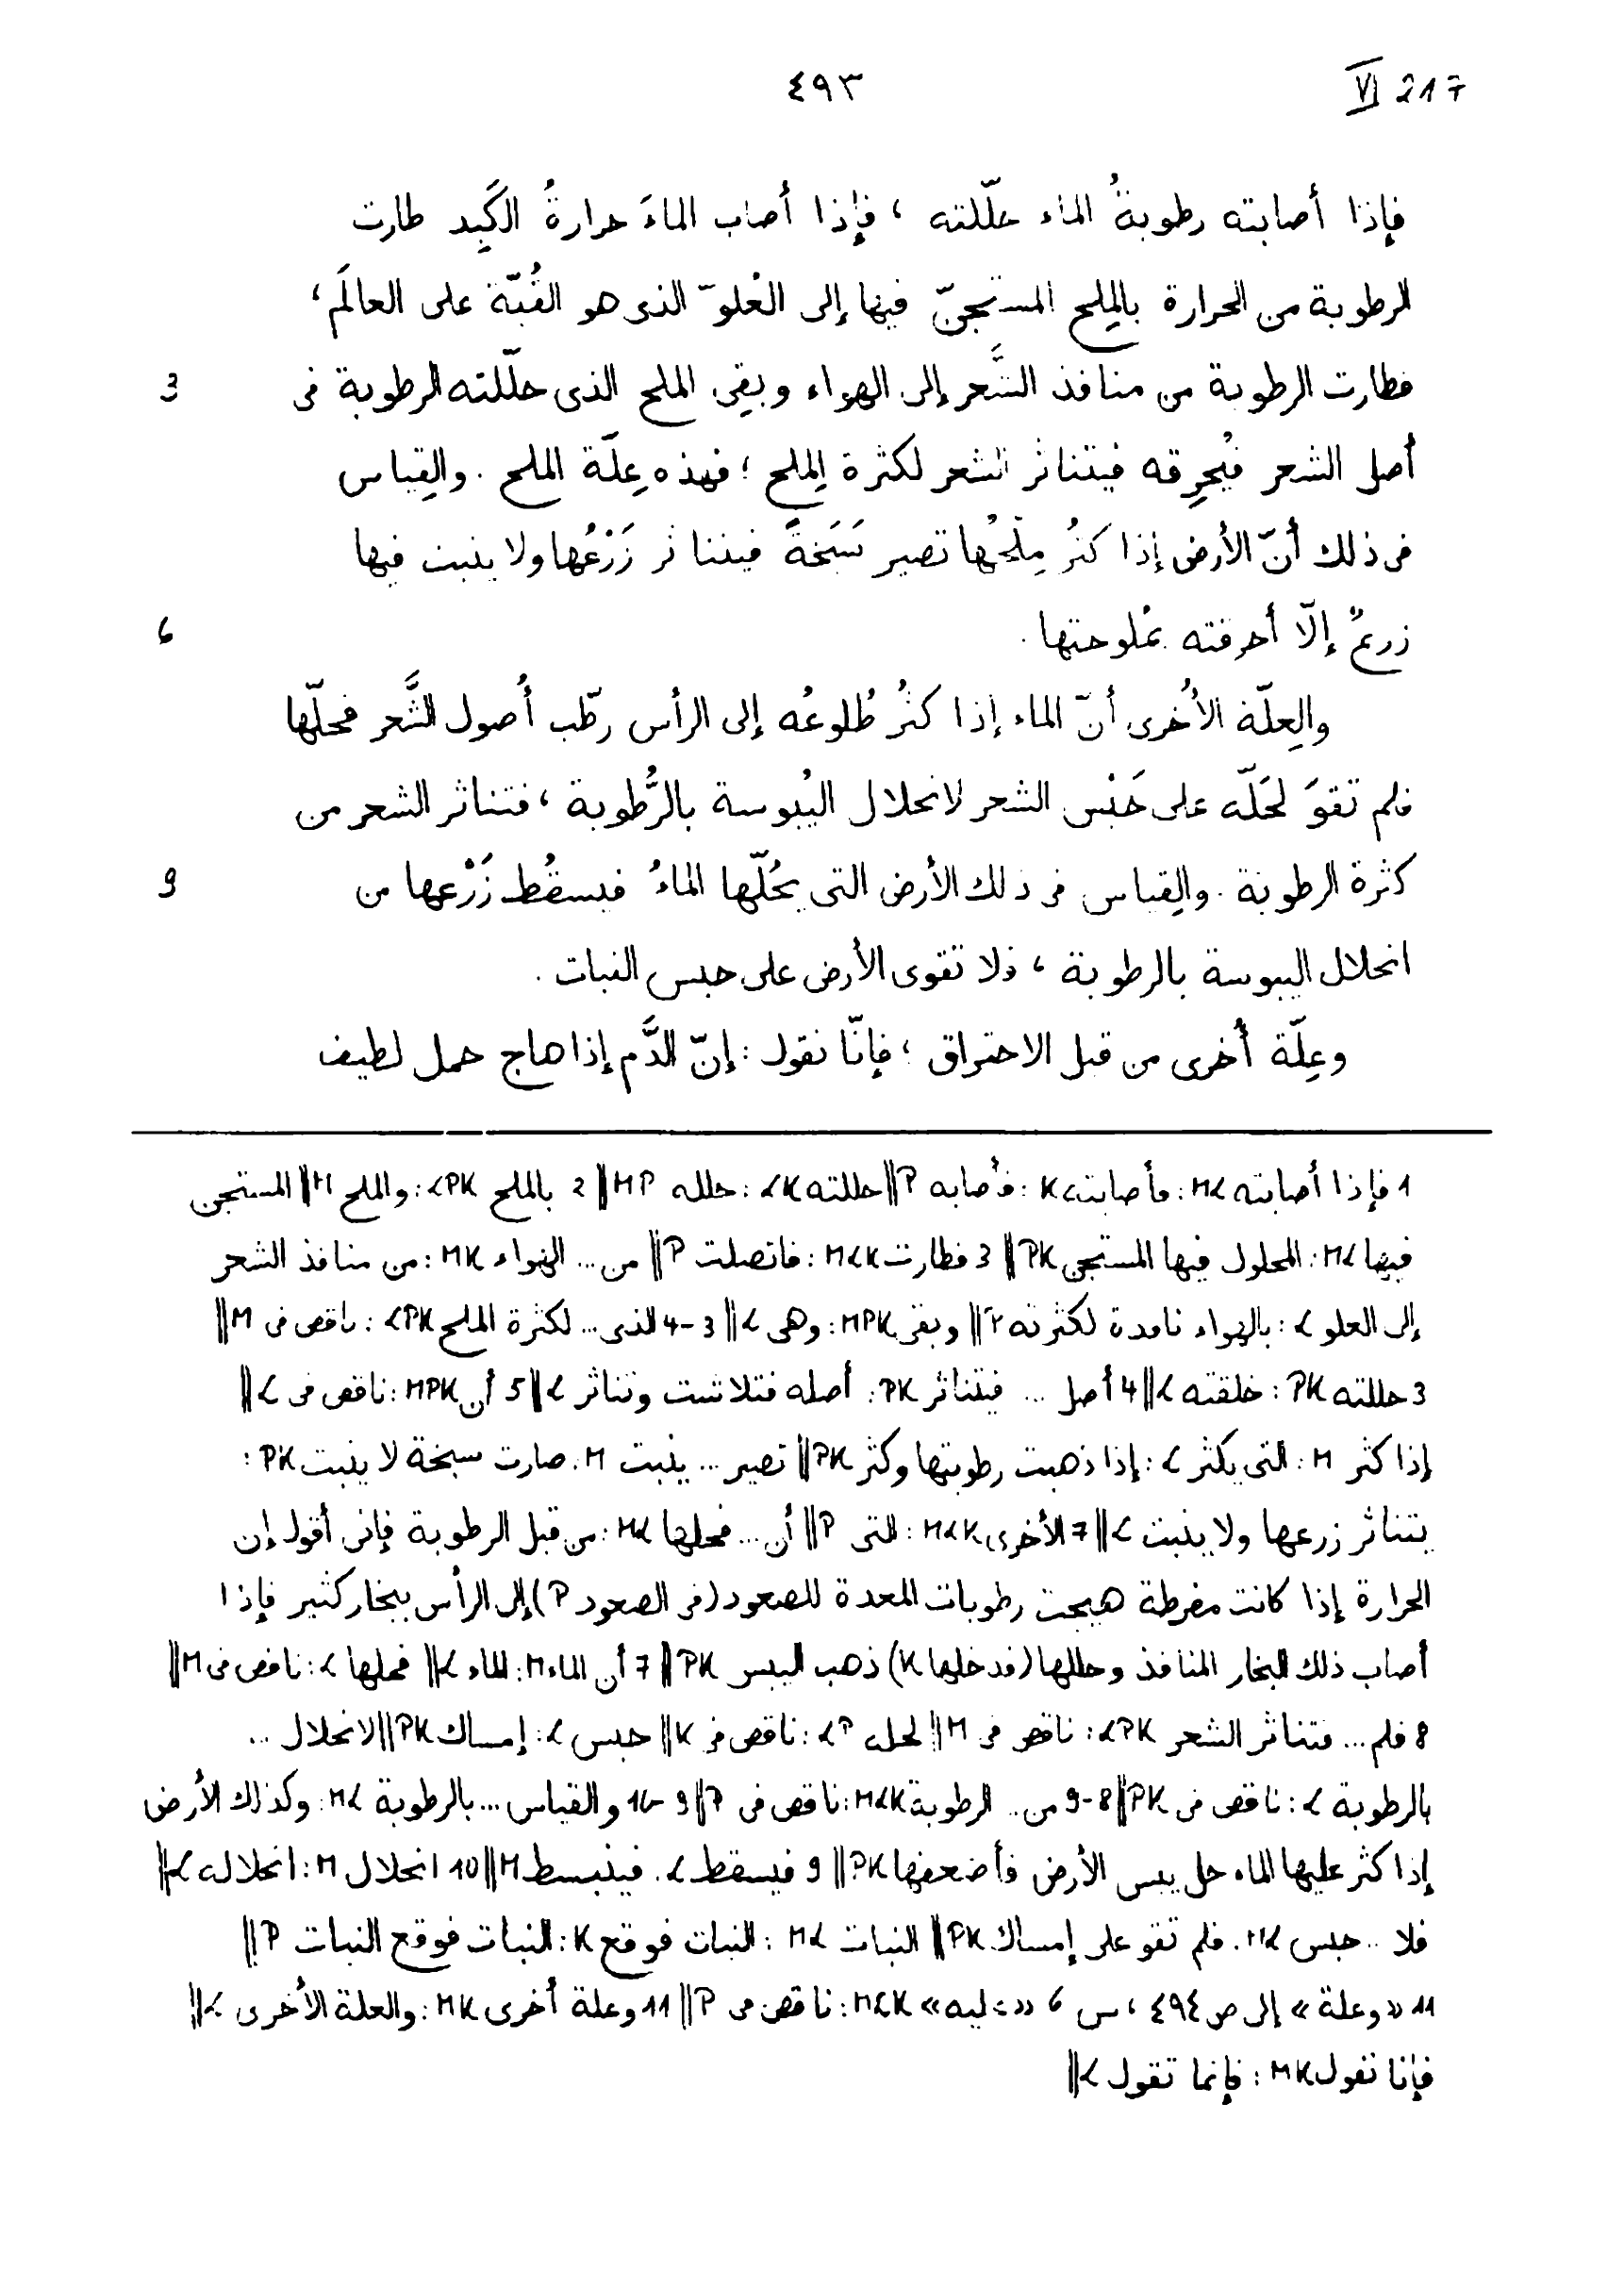 ٤٩٣ VI 217
فإذا أصابته رطوبةُ الماء حلّلته ، فإذا أصاب الماءَ حرارةُ الكَبِد طارت
الرطوبة من الحرارة بالمِلح المستجنّ فيها إلى العُلوّ الذى هو القُبّة على العالَم ،
3 فطارت الرطوبة من منافذ الشَّعر إلى الهواء وبقِى الملح الذى حلّلته الرطوبة فى
أصل الشعر فيُحرِقه فيتناثر الشعر لكثرة المِلح ؛ فهذه عِلّة الملح . والقِياس
فى ذلك أنّ الأرض إذا كثُر مِلْحُها تصير سَبَخةً فيتناثر زَرْعُها ولا ينبت فيها
6 زرعٌ إلّا أحرقته بمُلوحتها .
والعِلّة الأُخرى أنّ الماء إذا كثُر طُلوعُه إلى الرأس رطّب أُصول الشَّعر فحلّها
فلم تقوَ لحَلّه على حَبْس الشعر لانحلال اليُبوسة بالرُّطوبة ، فتناثر الشعر من
9 كثرة الرطوبة . والقِياس فى ذلك الأرض التى يحُلّها الماءُ فيسقُط زَرْعها من
انحلال اليبوسة بالرطوبة ، فلا تقوى الأرض على حبس النبات .
وعِلّة أُخرى من قبل الاحتراق ؛ فإنّا نقول : إنّ الدَّم إذا هاج حمل لطيف
1 فإذا أصابته M𝓛 : فأصابته K : فأصابه P || حللته 𝓛K : حلله MP || 2 بالملح 𝓛PK : والملح M || المستجن
فيها M𝓛 : المحلول فيها المستجن PK || 3 فطارت M𝓛K : فاتصلت P || من ... الهواء MK : من منافذ الشعر
إلى العلو 𝓛 : بالهواء لكثرته P || وبقى MPK : وهى 𝓛 || 3-4 الذى ... لكثرة الملح 𝓛PK : ناقص فى M ||
3 حللته PK : خلقته 𝓛 || 4 أصل ... فيتناثر PK : أصله فتلاشت وتناثر 𝓛 || 5 أن MPK : ناقص فى 𝓛 ||
إذا كثر M : التى يكثر 𝓛 : إذا ذهبت رطوبتها وكثر PK || تصير ... ينبت M : صارت سبخة لا ينبت PK :
يتناثر زرعها ولا ينبت 𝓛 || 7 الأخرى M𝓛K : التى P || أن ... فحلها M𝓛 : من قبل الرطوبة فإنى أقول إن
الحرارة إذا كانت مفرطة هيجت رطوبات المعدة للصعود (فى الصعود P) إلى الرأس ببخار كثير فإذا
أصاب ذلك البخار المنافذ وحللها (فدخلها K) ذهب اليبس PK || 7 أن الماء M : الماء 𝓛 || فحلها 𝓛 : ناقص فى M ||
8 فلم ... فتناثر الشعر 𝓛PK : ناقص فى M || لحله 𝓛P : ناقص فى K || حبس 𝓛 : إمساك PK || لانحلال ...
بالرطوبة 𝓛 : ناقص فى PK || 8-9 من ... الرطوبة M𝓛K : ناقص فى P || 9-10 والقياس ... بالرطوبة M𝓛 : وكذلك الأرض
إذا كثر عليها الماء حل يبس الأرض فأضعفها PK || 9 فيسقط 𝓛 : فينبسط M || 10 انحلال M : انحلاله 𝓛 ||
فلا ... حبس M𝓛 : فلم تقو على إمساك PK || النبات M𝓛 : النبات فوقع K : النبات فوقع النبات P ||
11 «وعلة» إلى ص ٤٩٤ ، س 6 M𝓛K : ناقص فى P || 11 وعلة أخرى MK : والعلة الأخرى 𝓛 ||
فإنا نقول MK : فإنما تقول 𝓛 ||